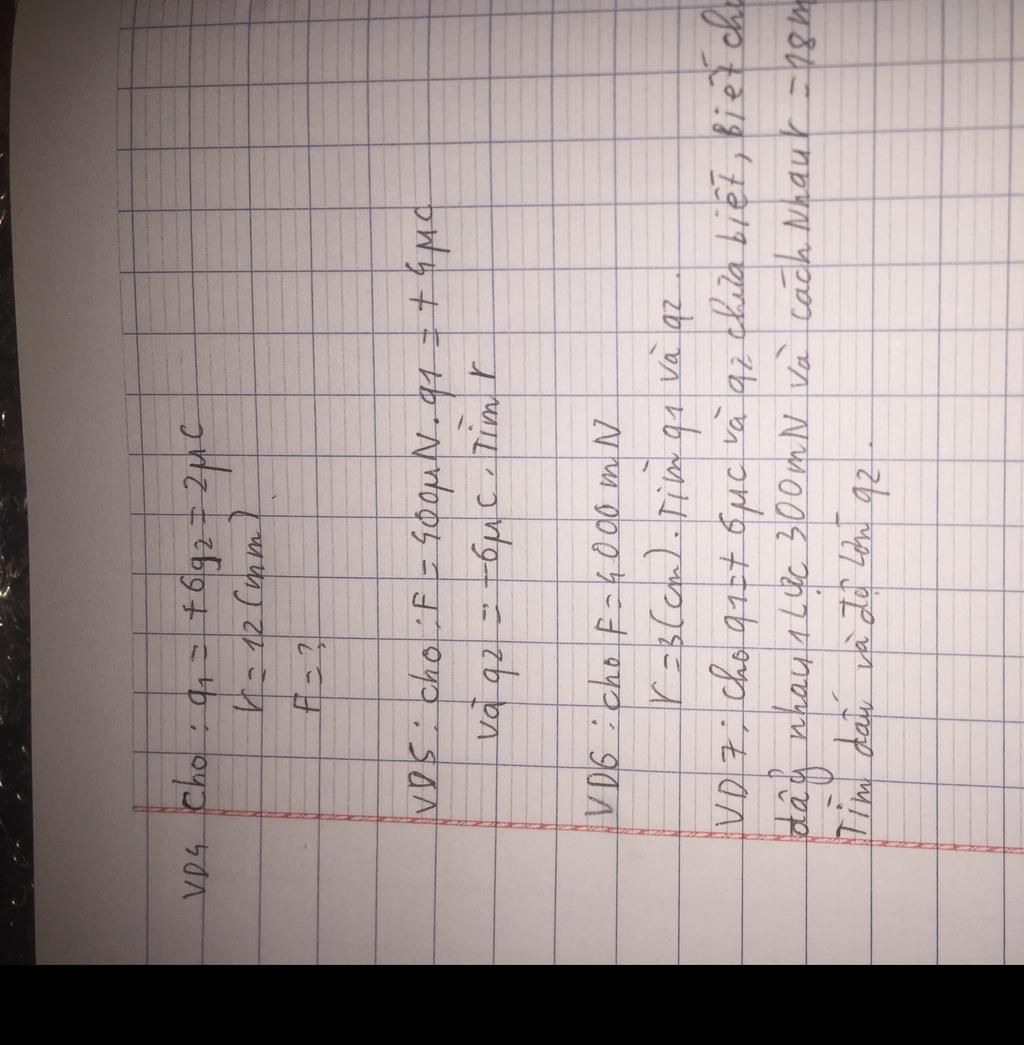 VD4 Cho : q1 = +6q2 = 2μC
r = 12 (mm)
F = ?
VD5 : cho : F = 400μN. q1 = +4μC
và q2 = -6μC. Tìm r
VD6 : cho F = 4000 mN
r = 3 (cm). Tìm q1 và q2.
VD7 : Cho q1 = +6μC và q2 chưa biết, Biết
đẩy nhau 1 lực 300mN và cách Nhau r = 18
Tìm dấu và độ lớn q2.